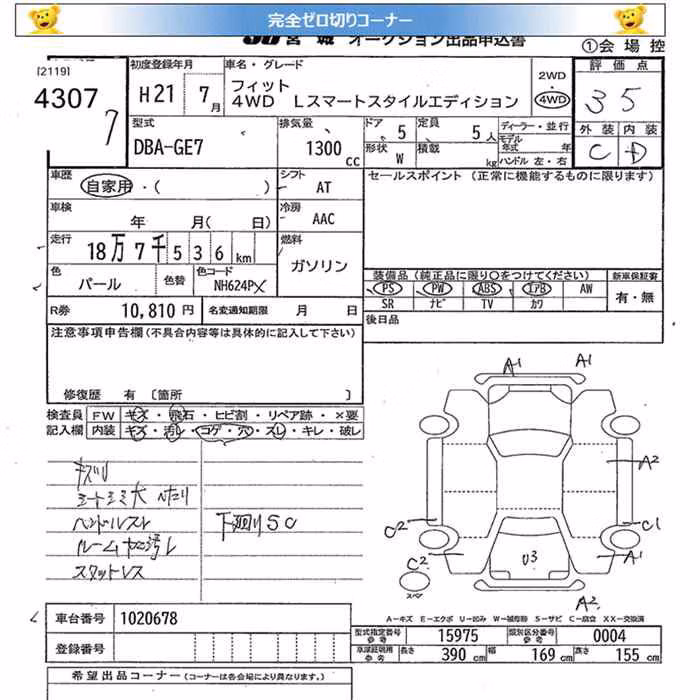 完全ゼロ切りコーナー
JU宮城 オークション出品申込書
①会場控
[2119]
4307
7
初度登録年月
H21 7月
車名・グレード
フィット
4WD Lスマートスタイルエディション
2WD
4WD
評価点
35
外装 内装
C D
型式
DBA-GE7
排気量
1300cc
ドア 5
形状 W
定員 5人
積載 kg
ディーラー・並行
モデル年式 年
ハンドル 左・右
車歴
自家用・( )
シフト
AT
セールスポイント (正常に機能するものに限ります)
車検
年 月( 日)
冷房
AAC
走行
18万7千536km
燃料
ガソリン
色
パール
色替
色コード
NH624PX
装備品(純正品に限り○をつけてください)
PS PW ABS エアB AW
SR ナビ TV カワ
新車保証書
有・無
R券 10,810円
名変通知期限 月 日
後日品
注意事項申告欄(不具合内容等は具体的に記入して下さい)
修復歴 有 [箇所 ]
検査員 FW キズ・飛石・ヒビ割・リペア跡・×要
記入欄 内装 キズ・汚レ・コゲ・穴・スレ・キレ・破レ
キズリ
シートシミ大 ヘタリ
ハンドルスレ
下廻りSC
スタットレス
A1
A1
A2
C2
C1
C2
A1
U3
A2
A-キズ E-エクボ U-凹み W-補修跡 S-サビ C-腐食 XX-交換済
車台番号 1020678
登録番号
型式指定番号 参考 15975
類別区分番号 参考 0004
車庫証明用 参考 長さ 390cm 幅 169cm 高さ 155cm
希望出品コーナー(コーナーは各会場により異なります。)